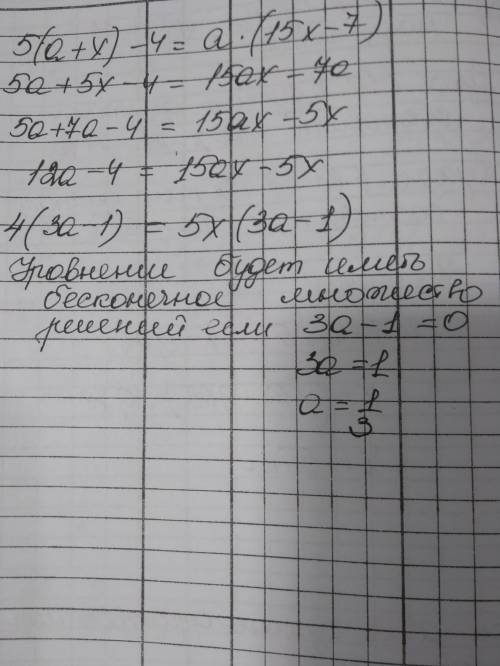 5(a+x)-4 = a·(15x-7)
5a+5x-4 = 15ax-7a
5a+7a-4 = 15ax-5x
12a-4 = 15ax-5x
4(3a-1) = 5x(3a-1)
Уровнение будет иметь
бесконечное множество
решений если 3a-1 =0
3a=1
a = 1/3